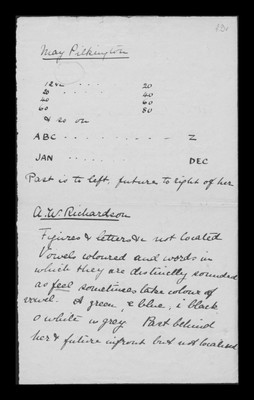 May Pilkington
12 20
20 40
40 60
60 80
& so on
ABC Z
JAN DEC
Past is to left, future to right of her
A.W. Richardson
Figures & letters &c not located
Vowels coloured and words in
which they are distinctly sounded
as feel sometimes take colour of
vowel. A green, e blue, i black
o white u grey Past behind
her & future in front but not localised